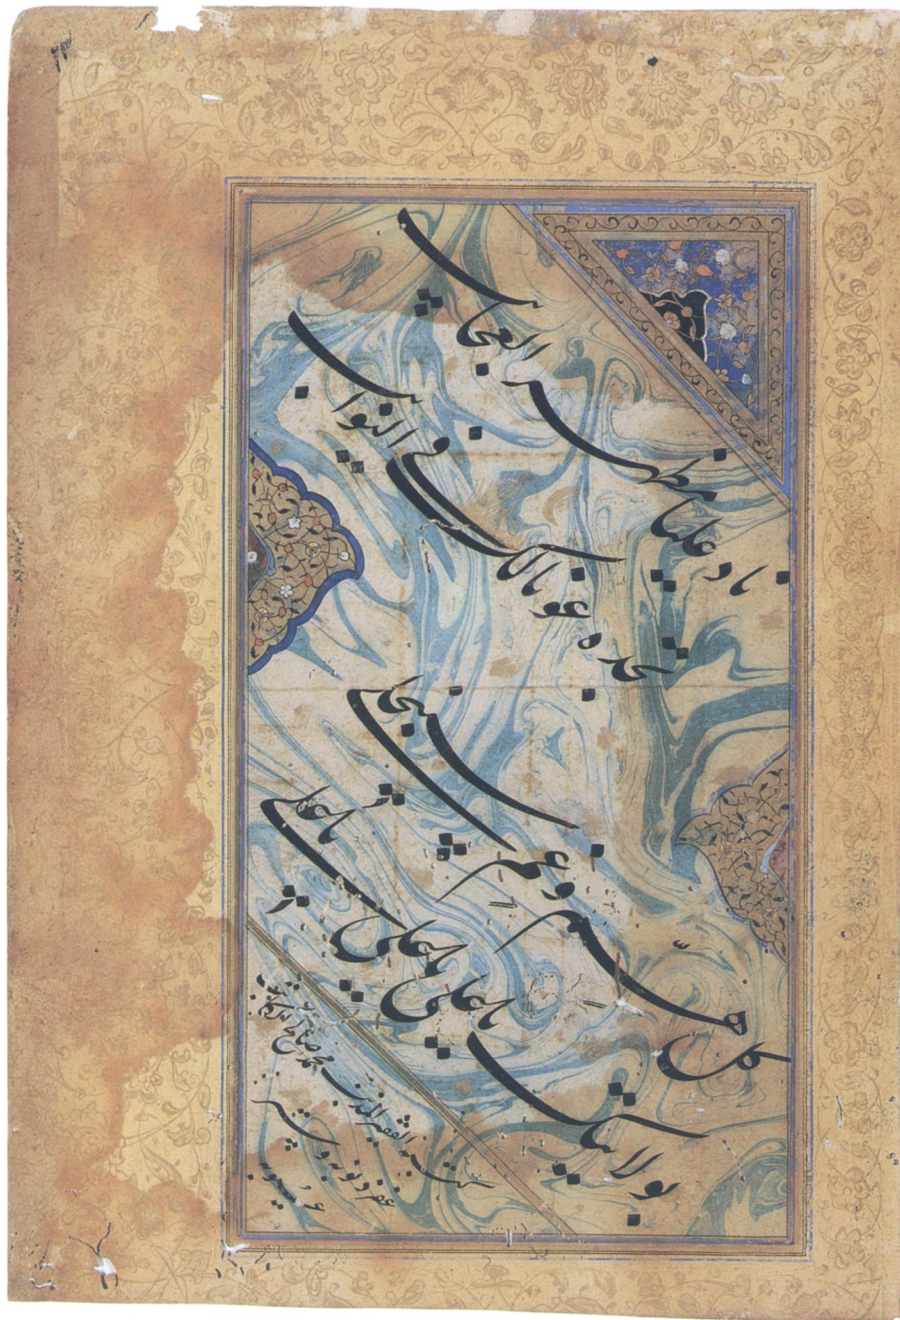 ناد علیا مظهر العجایب
تجده عونا لک فی النوایب
کل هم و غم سینجلی
بولایتک یا علی یا علی یا علی
کتبه الفقیر المذنب محمد صالح
غفر ذنوبه و ستر
عیوبه